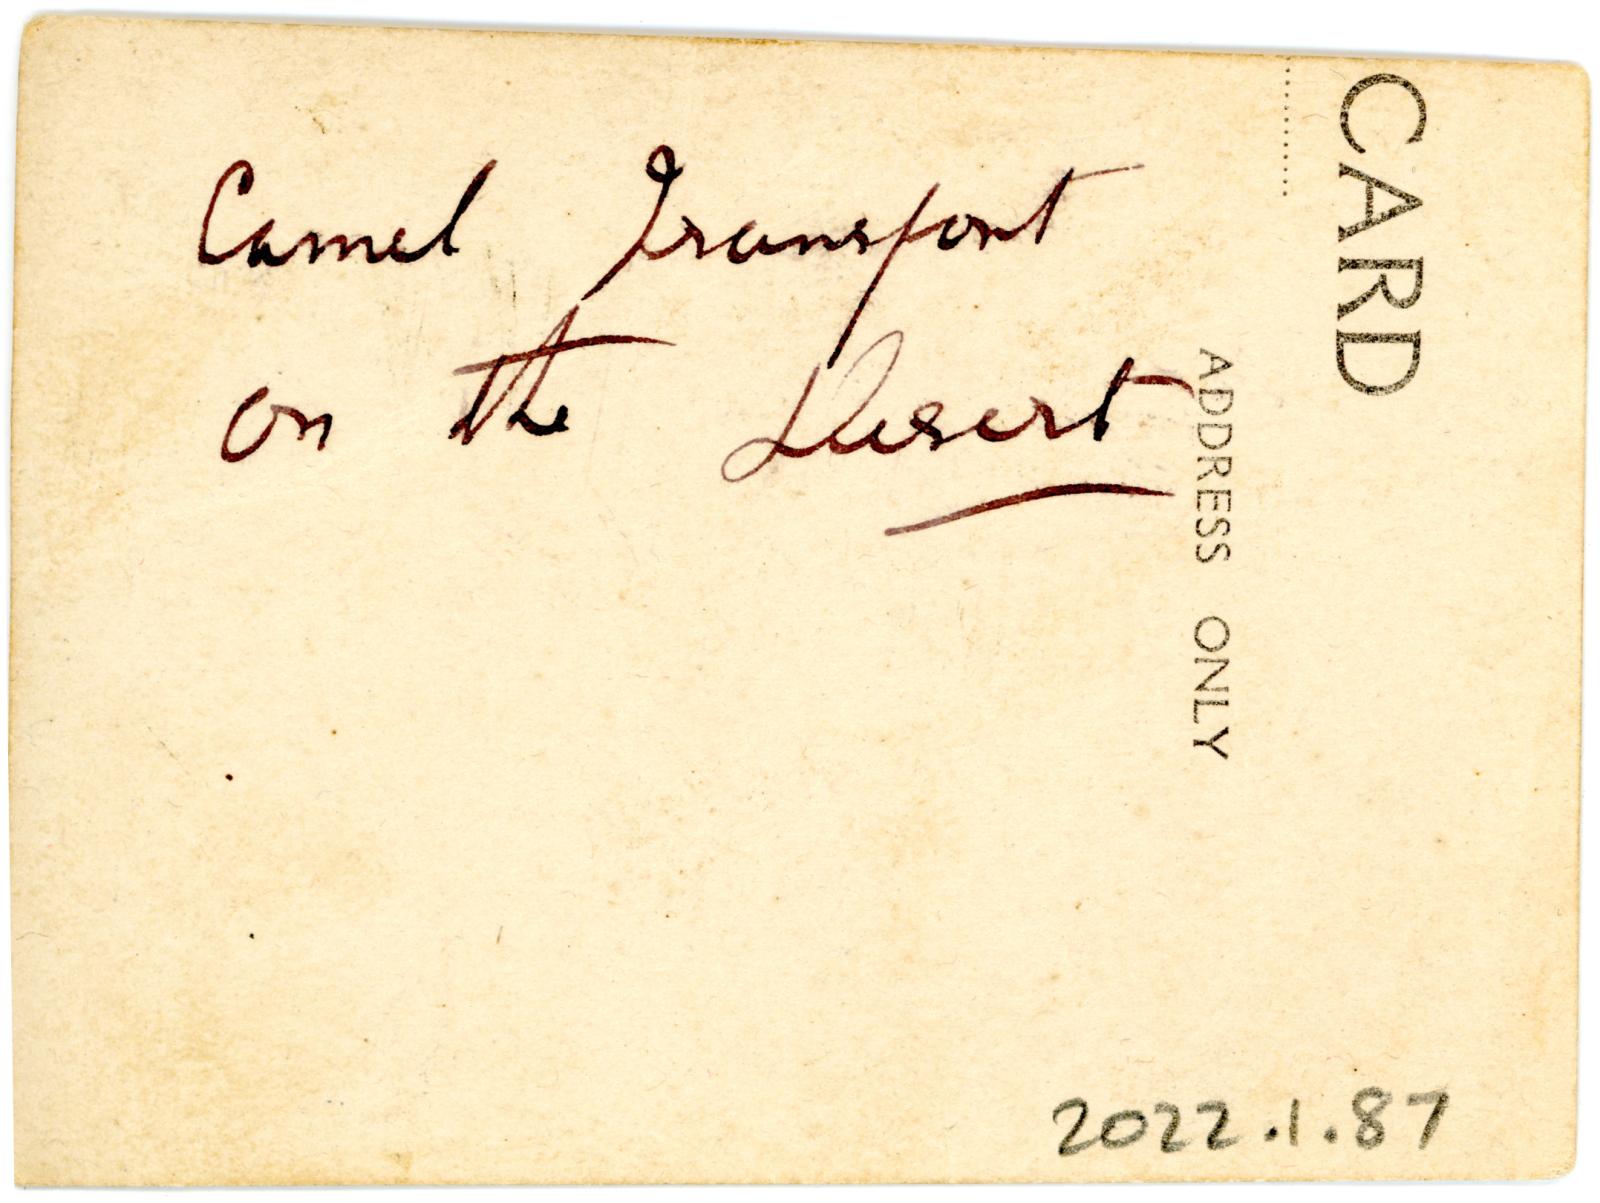 Camel Transport
on the Desert
CARD
ADDRESS ONLY
2022.1.87